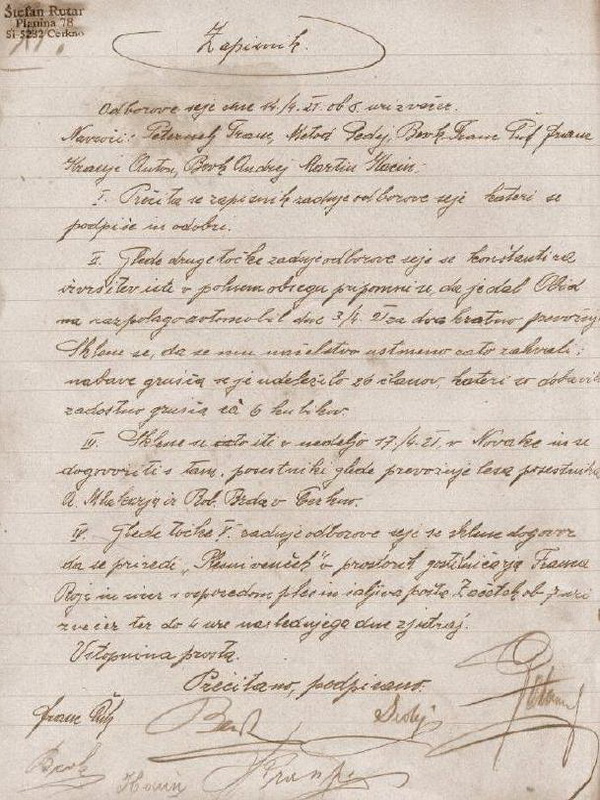 Štefan Rutar
Planina 78
SI-5282 Cerkno
Zapisnik.
Odborove seje dne 14/4. 21. ob 8 uri zvečer.
Navzoči: Peternelj Franc, Metod Peduj, Bevk Franc Franc
Kranjc Anton, Bevk Andrej Martin Hacin.
I. Prečita se zapisnik zadnje odborove seje kateri se
podpiše in odobri.
II. Glede druge točke zadnje odborove seje se konštantira
izvršitev iste v polnem obsegu pripomni se, da je dal
na razpolago automobil dne 3/4. 21 za dvakratno prevoznjo
Sklene se, da se mu načelstvo ustmeno zato zahvali;
nabave grušča se je udeležilo 26 članov, kateri so dobavili
zadostno grušča za 6 kubikov.
III. Sklene se iti v nedeljo 17./4. 21. v Novake in se
dogovoriti s tam. posestniki glede prevoznje lesa posestnika
A. Mlakarja iz Brda v Cerkno.
IV. Glede točke V. zadnje odborove seje se sklene dogovor
da se priredi „Plesni venček“ v prostorih gostilničarja Franca
in sicer s sporedom ples in šaljiva pošta. Začetek ob 7 uri
zvečer ter do 4 ure naslednjega dne zjutraj.
Vstopnina prosta.
Prečitano, podpisano.
Franc
Bevk
Peduj
Bevk